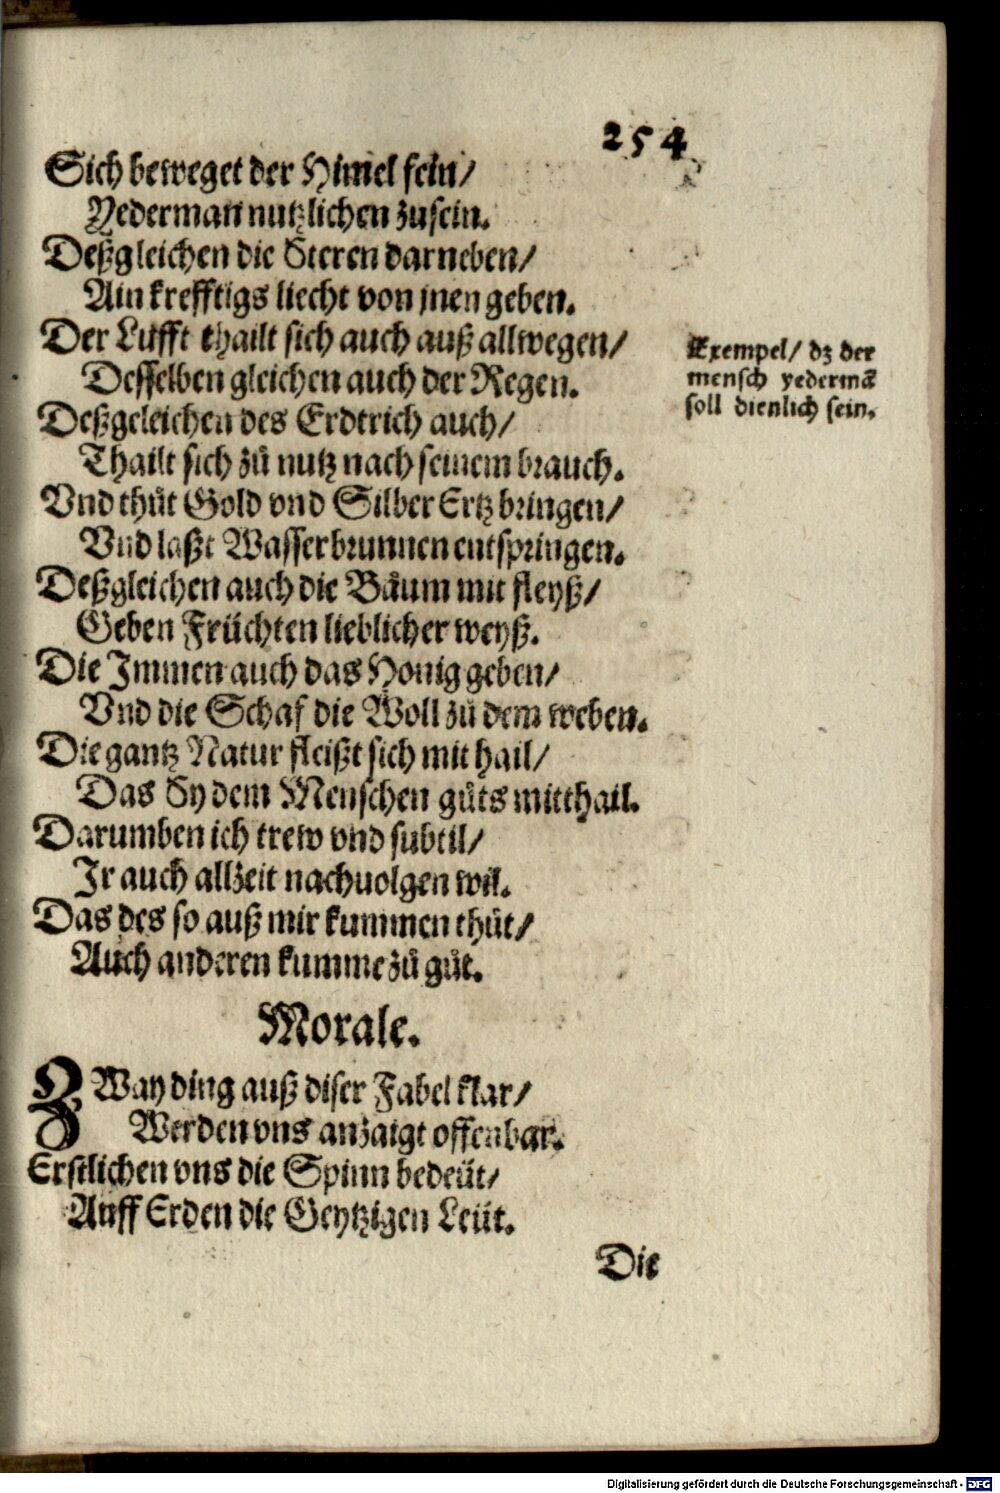 254
Sich beweget der Himel fein/
Yederman nutzlichen zusein.
Deßgleichen die Steren darneben/
Ain krefftigs liecht von jnen geben.
Der Lufft thailt sich auch auß allwegen/
Desselben gleichen auch der Regen.
Deßgeleichen des Erdtrich auch/
Thailt sich zů nutz nach seinem brauch.
Vnd thůt Gold vnd Silber Ertz bringen/
Vnd laßt Wasserbrunnen entspringen.
Deßgleichen auch die Bäum mit fleyß/
Geben Früchten lieblicher weyß.
Die Immen auch das Honig geben/
Vnd die Schaf die Woll zů dem weben.
Die gantz Natur fleißt sich mit hail/
Das Sy dem Menschen gůts mitthail.
Darumben ich trew vnd subtil/
Ir auch allzeit nachuolgen wil.
Das des so auß mir kummen thůt/
Auch anderen kumme zů gůt.
Exempel/ dz der
mensch yedermā
soll dienlich sein.
Morale.
ZWay ding auß diser Fabel klar/
Werden vns anzaigt offenbar.
Erstlichen vns die Spinn bedeüt/
Auff Erden die Geytzigen Leüt.
Die
Digitalisierung gefördert durch die Deutsche Forschungsgemeinschaft - DFG